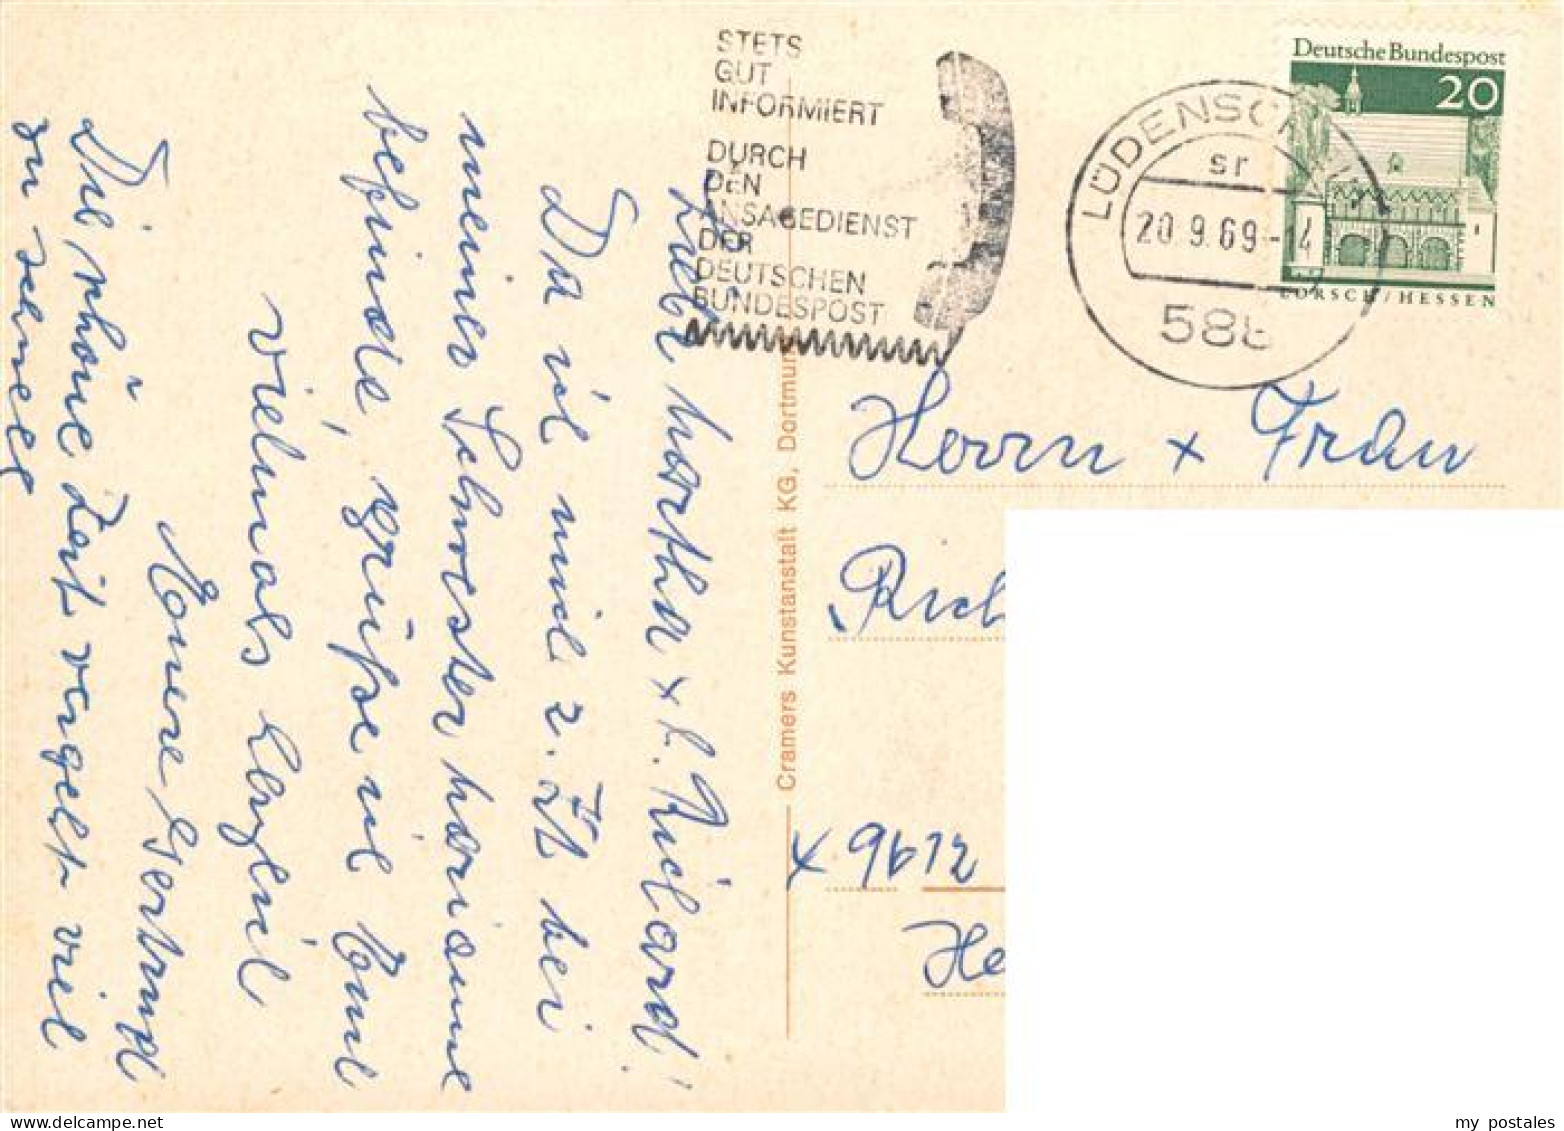 STETS
GUT
INFORMIERT
DURCH
DEN
ANSAGEDIENST
DER
DEUTSCHEN
BUNDESPOST
Deutsche Bundespost
20
LORSCH/HESSEN
LÜDENSC
sr
20.9.69-14
588
Liebe Martha + l. Richard!
Da ich mich z. Zt bei
meiner Schwester Marianne
befinde, grüße ich Euch
vielmals herzlich
Euere Gertrud
Die schöne Zeit vergeht viel
zu schnell
Cramers Kunstanstalt KG, Dortmund
Herrn + Frau
Rich
x 9612
He
my postales